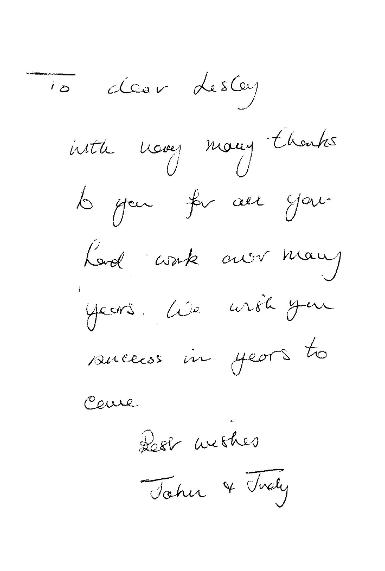 To dear Lesley
with very many thanks
to you for all your
hard work over many
years. We wish you
success in years to
come.
Best wishes
John & Judy